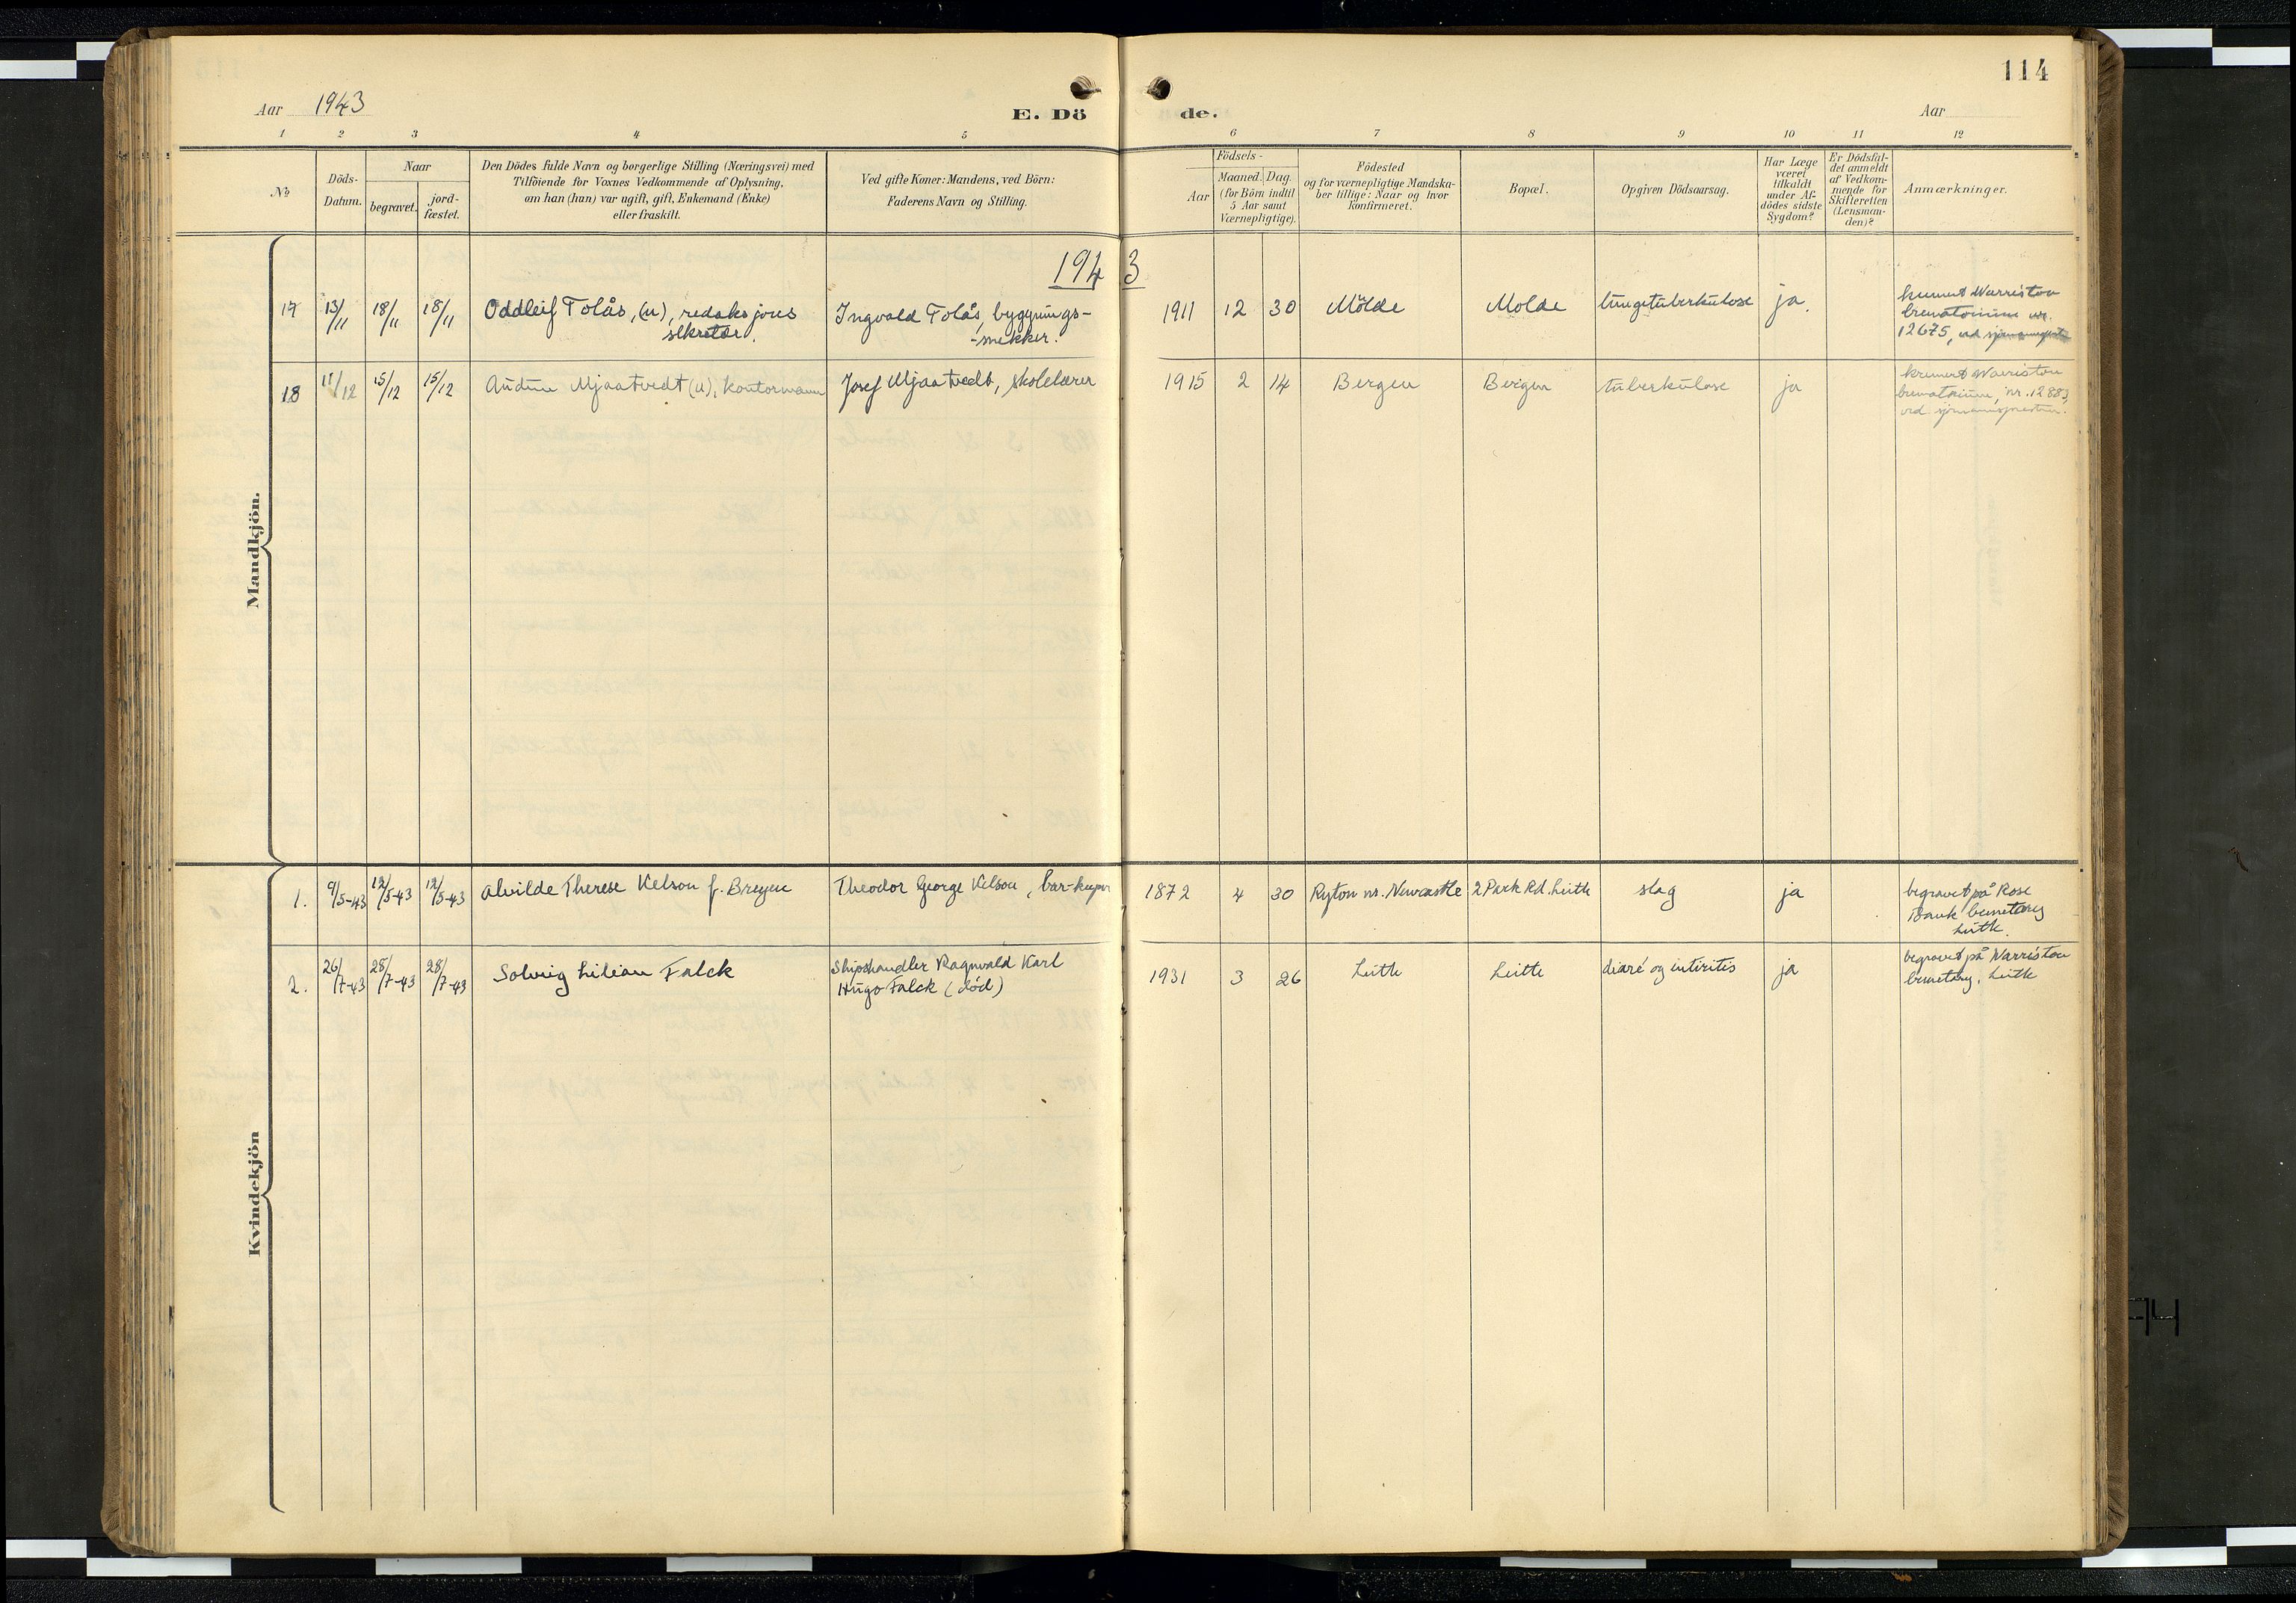 114
Aar 1943
E. Dö de.
Aar
1 2 3 4 5 6 7 8 9 10 11 12
No
Döds-
Datum.
Naar
begravet.
jord-
fæstet.
Den Dödes fulde Navn og borgerlige Stilling (Næringsvei) med
Tilföiende for Voxnes Vedkommende af Oplysning,
om han (hun) var ugift, gift, Enkemand (Enke)
eller fraskilt.
Ved gifte Koner: Mandens, ved Börn:
Faderens Navn og Stilling.
Födsels-
Aar
Maaned. Dag.
(for Börn indtil
5 Aar samt
Værnepligtige).
Födested
og for værnepligtige Mandska-
ber tillige: Naar og hvor
konfirmeret.
Bopæl.
Opgiven Dödsaarsag.
Har Læge
været
tilkaldt
under Af-
dödes sidste
Sygdom?
Er Dödsfal-
det anmeldt
af Vedkom-
mende for
Skifteretten
(Lensman-
den)?
Anmærkninger.
Mandkjön.
1943
17 13/11 18/11 18/11 Oddleif Tolås, (u), redaksjons
sekretær.
Ingvald Tolås, bygnings-
-snekker.
1911 12 30 Molde Molde lungetuberkulose ja.
kremert Warriston
crematorium nr.
12675,
18 11/12 15/12 15/12 Audun Mjaatvedt (u), kontormann Josef Mjaatvedt, skolelærer 1915 2 14 Bergen Bergen tuberkulose ja
kremert Warriston
crematorium, nr. 12883,
ved sjømannspresten.
Kvindekjön
1. 9/5-43 12/5-43 12/5-43 Alvilde Therese Kelson f. Breyen Theodor George Kelson, bar-keeper 1872 4 30 Ryton nr. Newcastle 2 Park Rd. Leith slag ja
begravet på Rose
Bank cemetary
Leith.
2. 26/7-43 28/7-43 28/7-43 Solveig Lilian Falck
Shipschandler Ragnvald Karl
Hugo Falck (død)
1931 3 26 Leith Leith diaré og intiritis ja
begravet på Warriston
cemetary, Leith